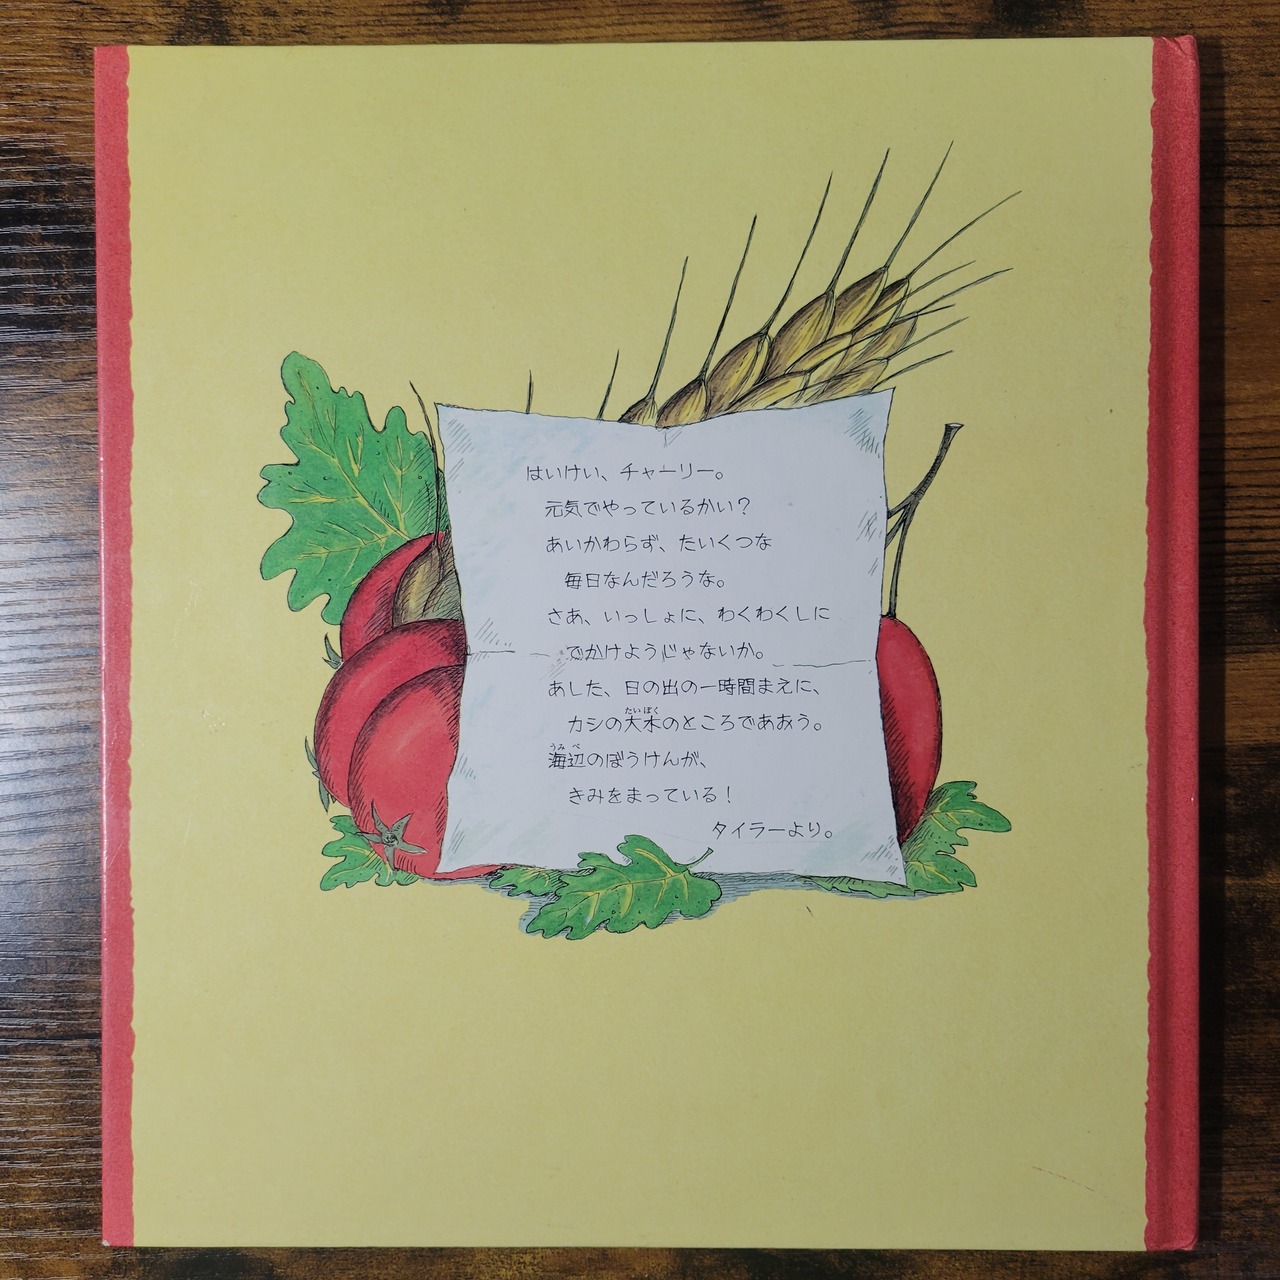 はいけい、チャーリー。
元気でやっているかい？
あいかわらず、たいくつな
毎日なんだろうな。
さあ、いっしょに、わくわくしに
でかけようじゃないか。
あした、日の出の一時間まえに、
カシの大木のところであおう。
海辺のぼうけんが、
きみをまっている！
タイラーより。